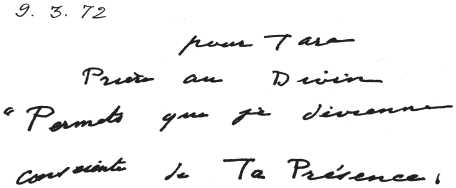 9. 3. 72
pour Tara
Prière au Divin
"Permets que je devienne
consciente de Ta Présence,